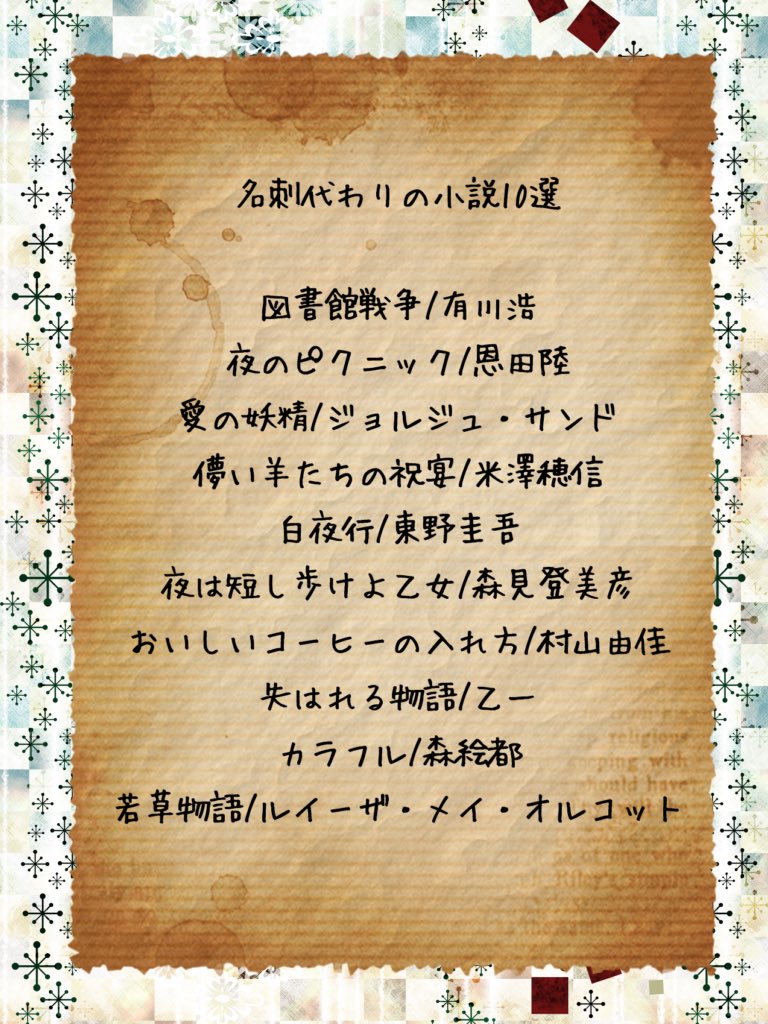 名刺代わりの小説10選
図書館戦争/有川浩
夜のピクニック/恩田陸
愛の妖精/ジョルジュ・サンド
儚い羊たちの祝宴/米澤穂信
白夜行/東野圭吾
夜は短し歩けよ乙女/森見登美彦
おいしいコーヒーの入れ方/村山由佳
失はれる物語/乙一
カラフル/森絵都
若草物語/ルイーザ・メイ・オルコット
religious
keeping with
should have